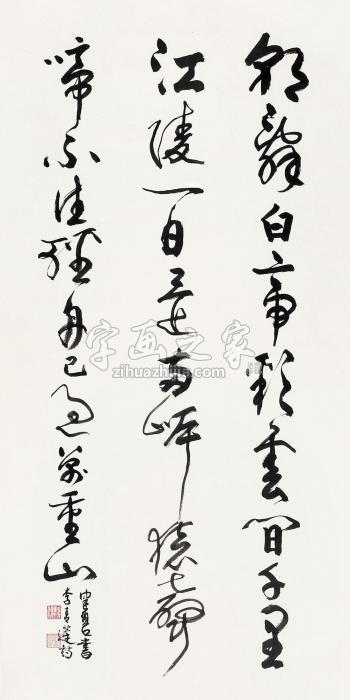 朝辭白帝彩雲間千里
江陵一日還兩岸猿聲
啼不住輕舟已過萬重山
書
李青蓮詩
字画之家
zihuazhijia.com